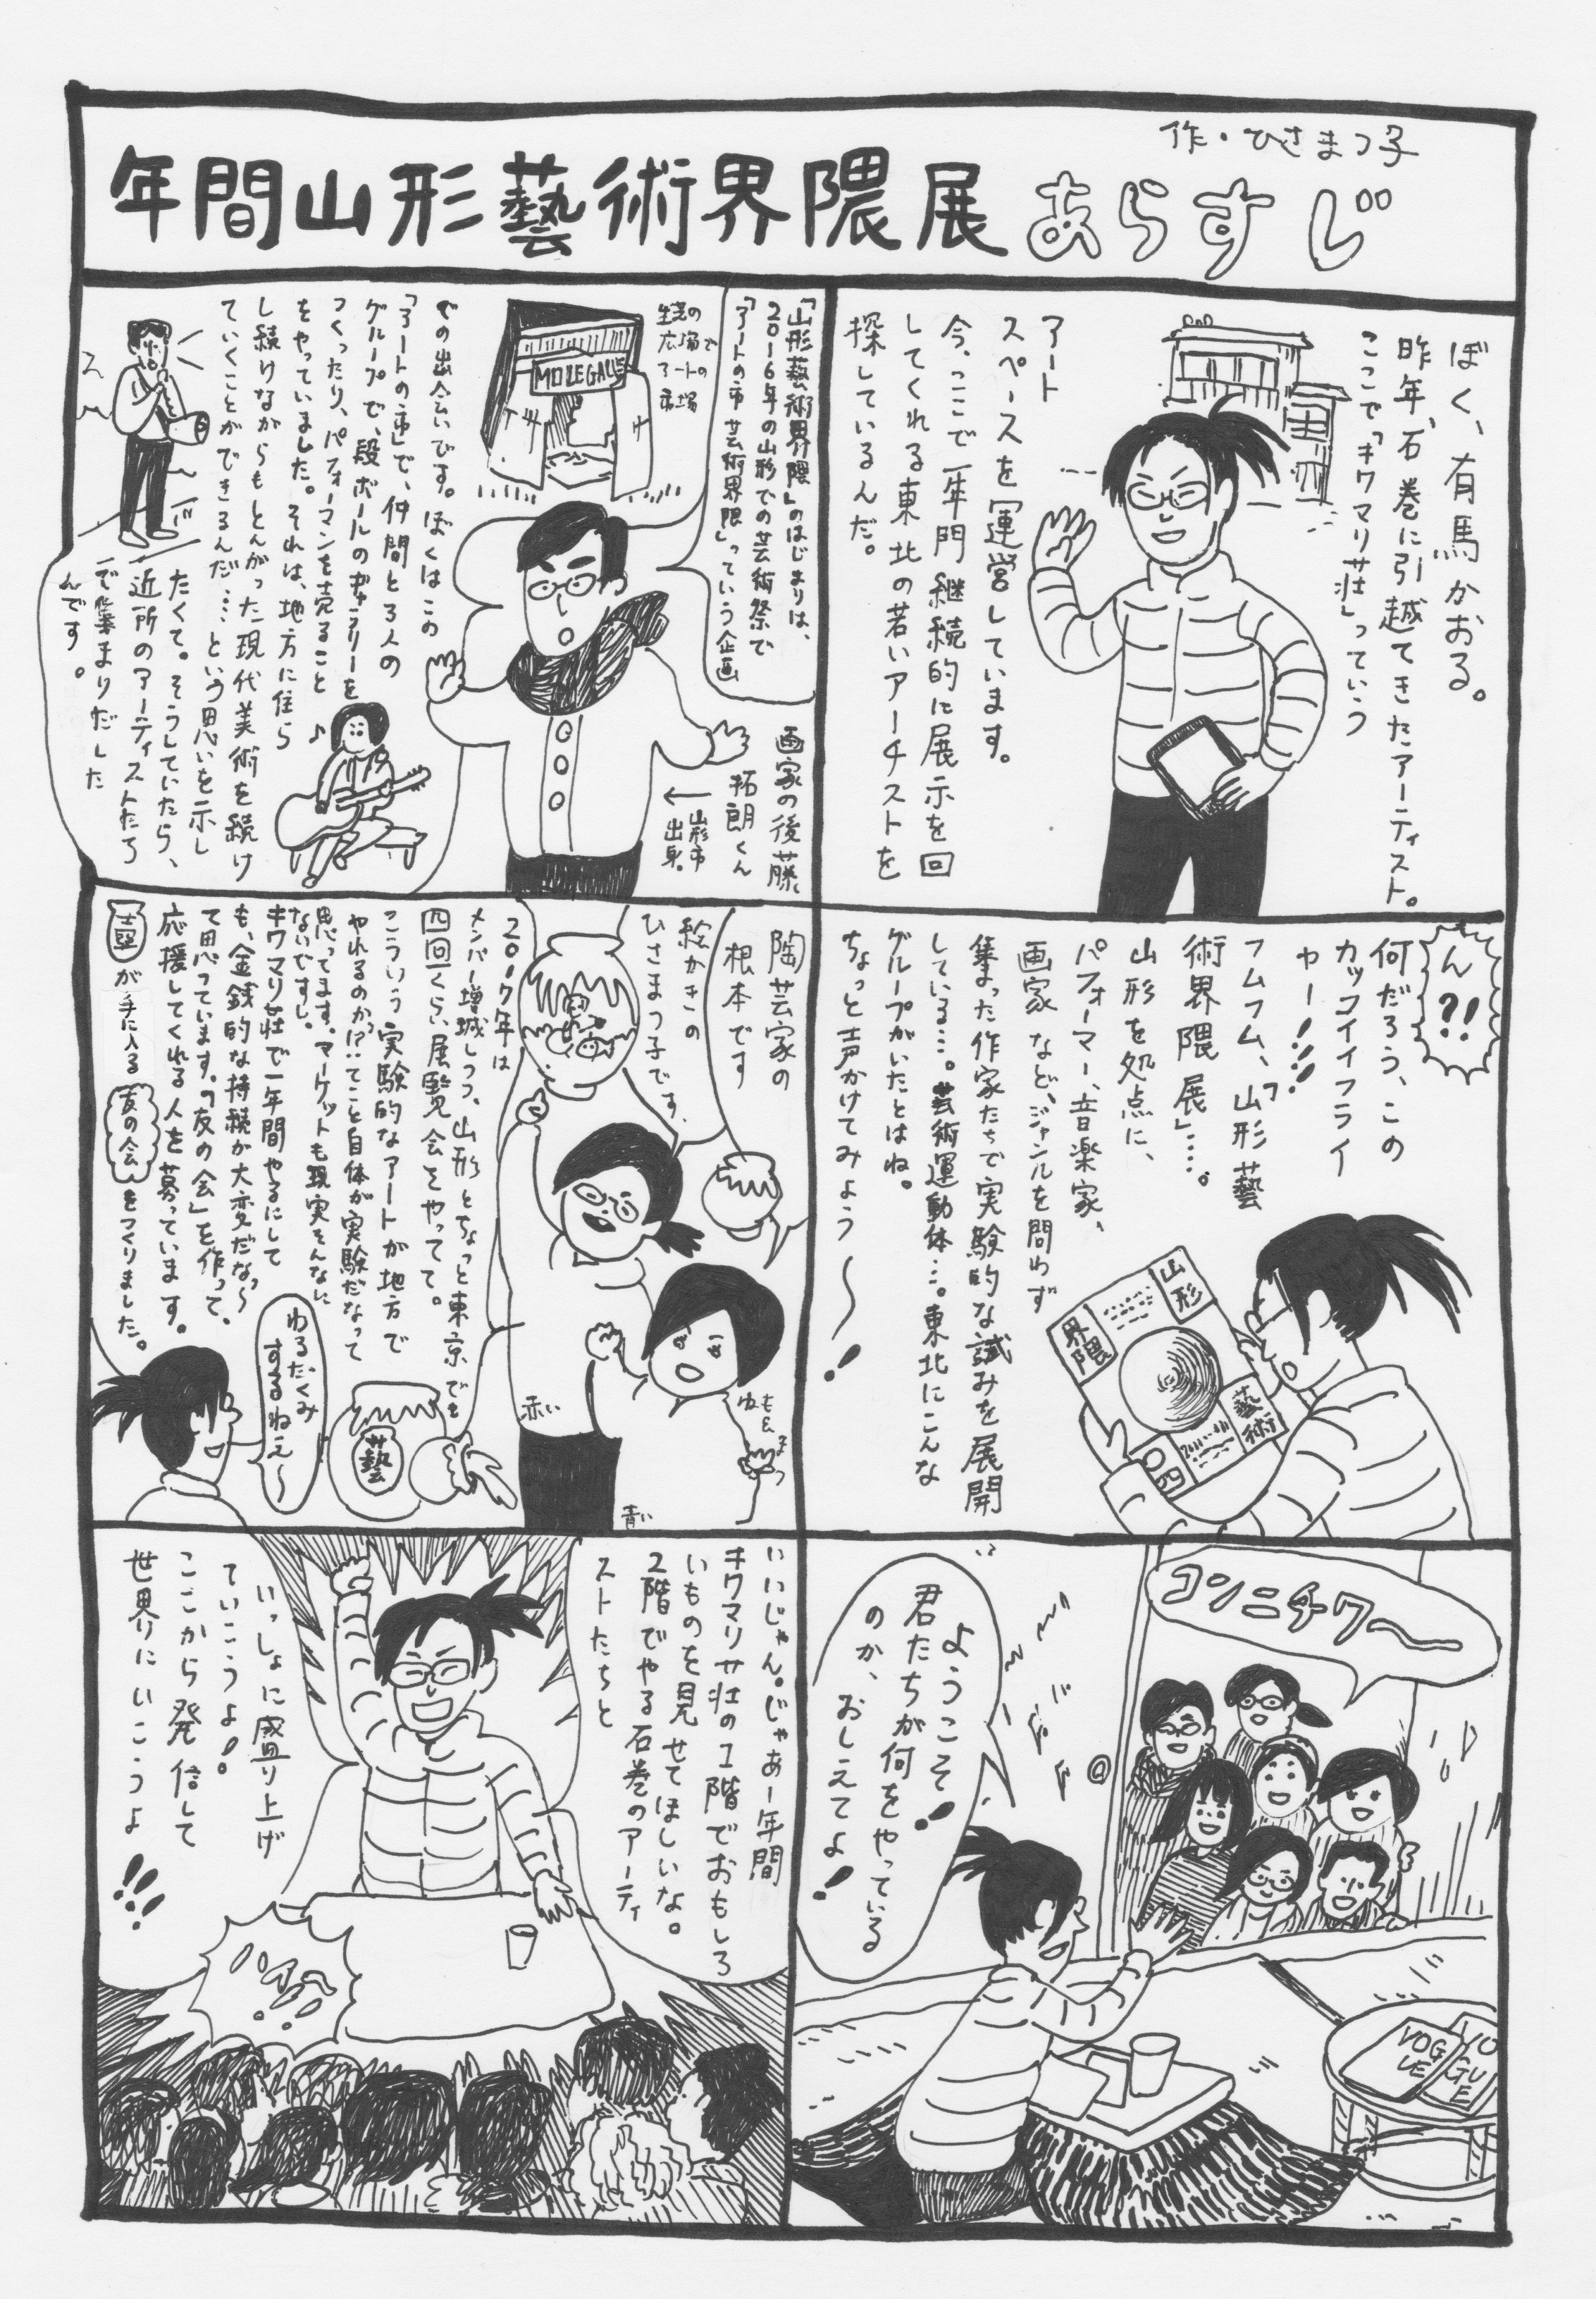 年間山形藝術界隈展 あらすじ
作・ひさまつ子
ぼく、有馬かおる。
昨年、石巻に引越してきたアーティスト。
ここで「キワマリ荘」っていう
アート
スペースを運営しています。
今、ここで一年間継続的に展示を回
してくれる東北の若いアーチストを
探しているんだ。
ん?!
何だろう、この
カッコイイフライ
ヤー!!!
フムフム、「山形藝
術界隈展」…。
山形を処点に、
パフォーマー、音楽家、
画家 など、ジャンルを問わず
集まった作家たちで実験的な試みを展開
している…。芸術運動体…。東北にこんな
グループがいたとはね。
ちょっと声かけてみよう〜〜!
山形
界隈
藝術
コンニチワー
ようこそ!
君たちが何をやっている
のか、おしえてよ!
VOG
UE
VO
GU
E
「山形藝術界隈」のはじまりは、
2016年の山形での芸術祭で
「アートの市 芸術界隈」っていう企画
生きの
広場で
アートの
市場
MOLE GALLE
画家の後藤
拓朗くん
←山形市
出身。
での出会いです。ぼくはこの
「アートの市」で、仲間と3人の
グループで、段ボールのギャラリーを
つくったり、パフォーマンを売ること
をやっていました。それは、地方に住ら
し続けながらもとんがった現代美術を続け
ていくことができるんだ…という思いを示し
たくて。そうしていたら、
近所のアーティストたち
で集まりだした
んです。
♪
陶芸家の
根本です
絵かきの
ひさまつ子です、
2017年は
メンバー増減しつつ、山形とちょっと東京でも
四回くらい展覧会をやってて。
こういう実験的なアートが地方で
やれるのか!?…てこと自体が実験だなって
思ってます。マーケットも現実そんなに
ないですし。
キワマリ荘で一年間やるにして
も、金銭的な持続が大変だなっ〜
て思っています。「友の会」を作って、
応援してくれる人を募っています。
壺が手に入る友の会をつくりました。
赤い
青い
藝
わるだくみ
するねえ〜
いいじゃん。じゃあ一年間
キワマリ荘の1階でおもしろ
いものを見せてほしいな。
2階でやる石巻のアーティ
ストたちと
いっしょに盛り上げ
ていこうよ!
ここから発信して
世界にいこうよ
!!!
ハイ〜